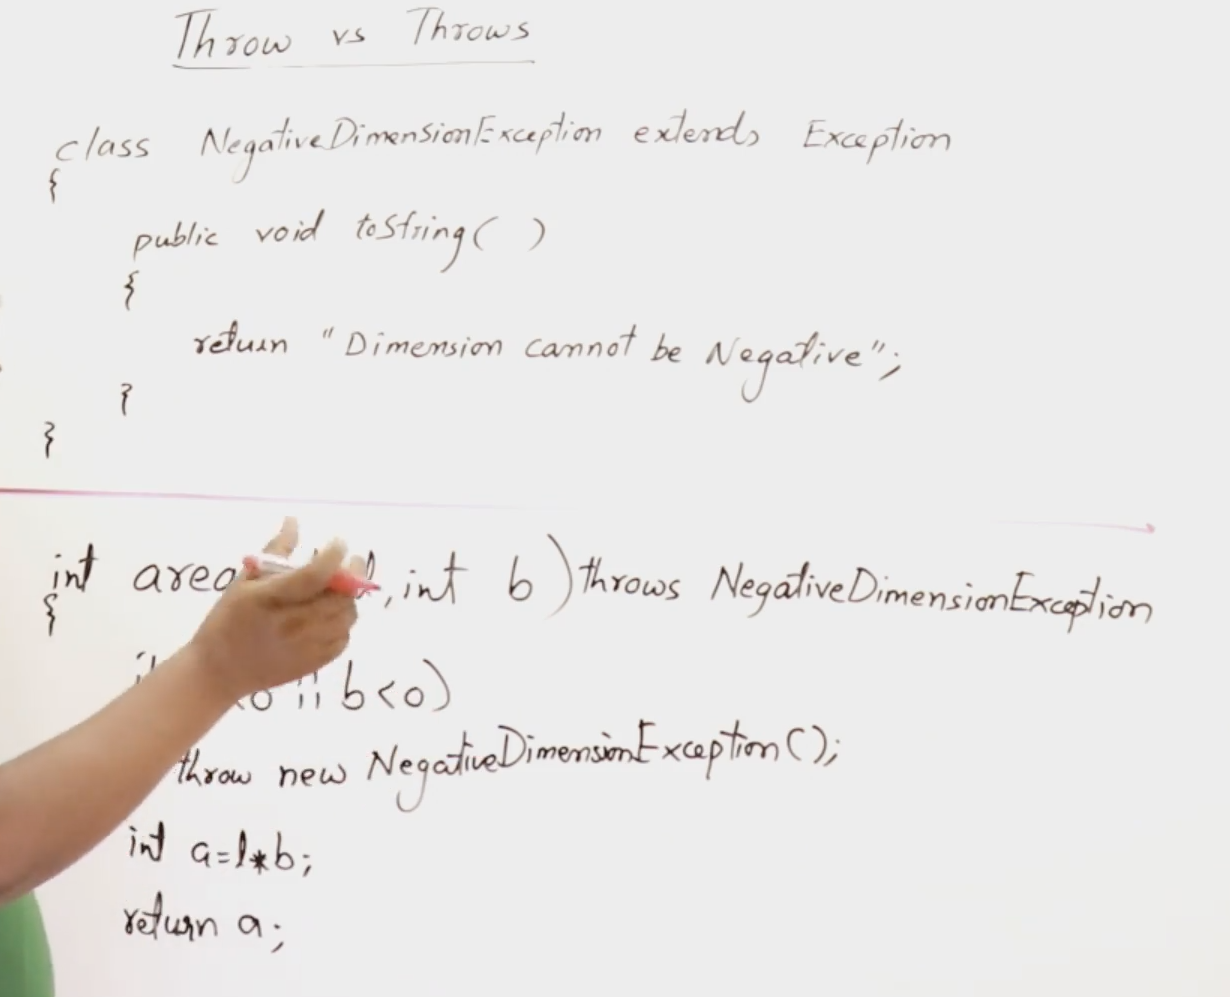 Throw vs Throws
class NegativeDimensionException extends Exception
{
public void toString( )
{
return "Dimension cannot be Negative";
}
}
int area , int b ) throws NegativeDimensionException
{
b<0)
throw new NegativeDimensionException();
int a=l*b;
return a;